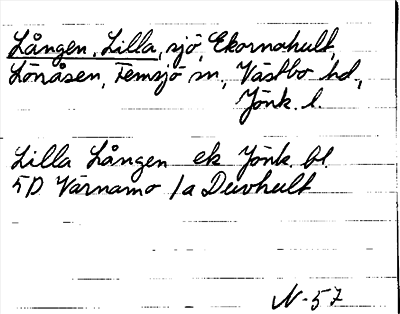 Lången, Lilla, sjö, Ekornahult,
Lönåsen, Femsjö sn, Västbo hd,
Jönk. l.
Lilla Lången ek Jönk. bl.
5D Värnamo 1a Duvhult
N-57